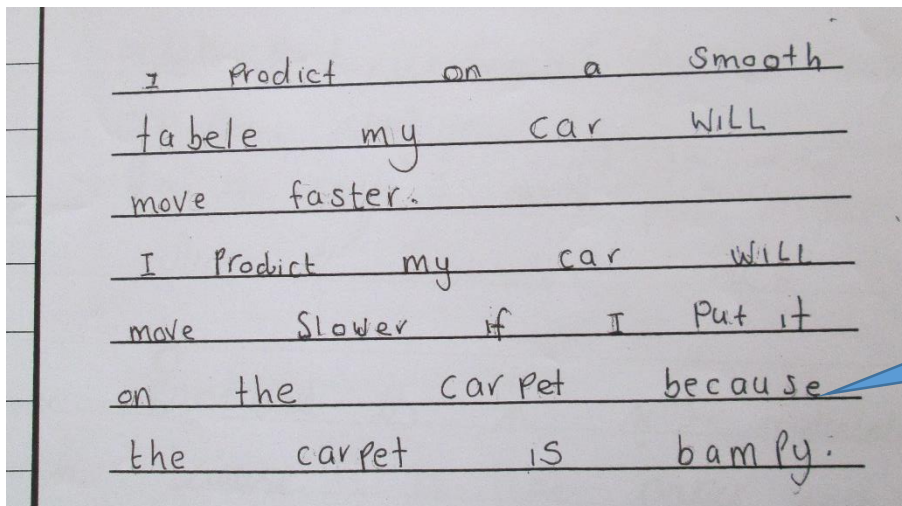 I Prodict on a Smooth
tabele my car WILL
move faster.
I Prodict my car WILL
move Slower if I Put it
on the carpet because
the carpet is bampy.